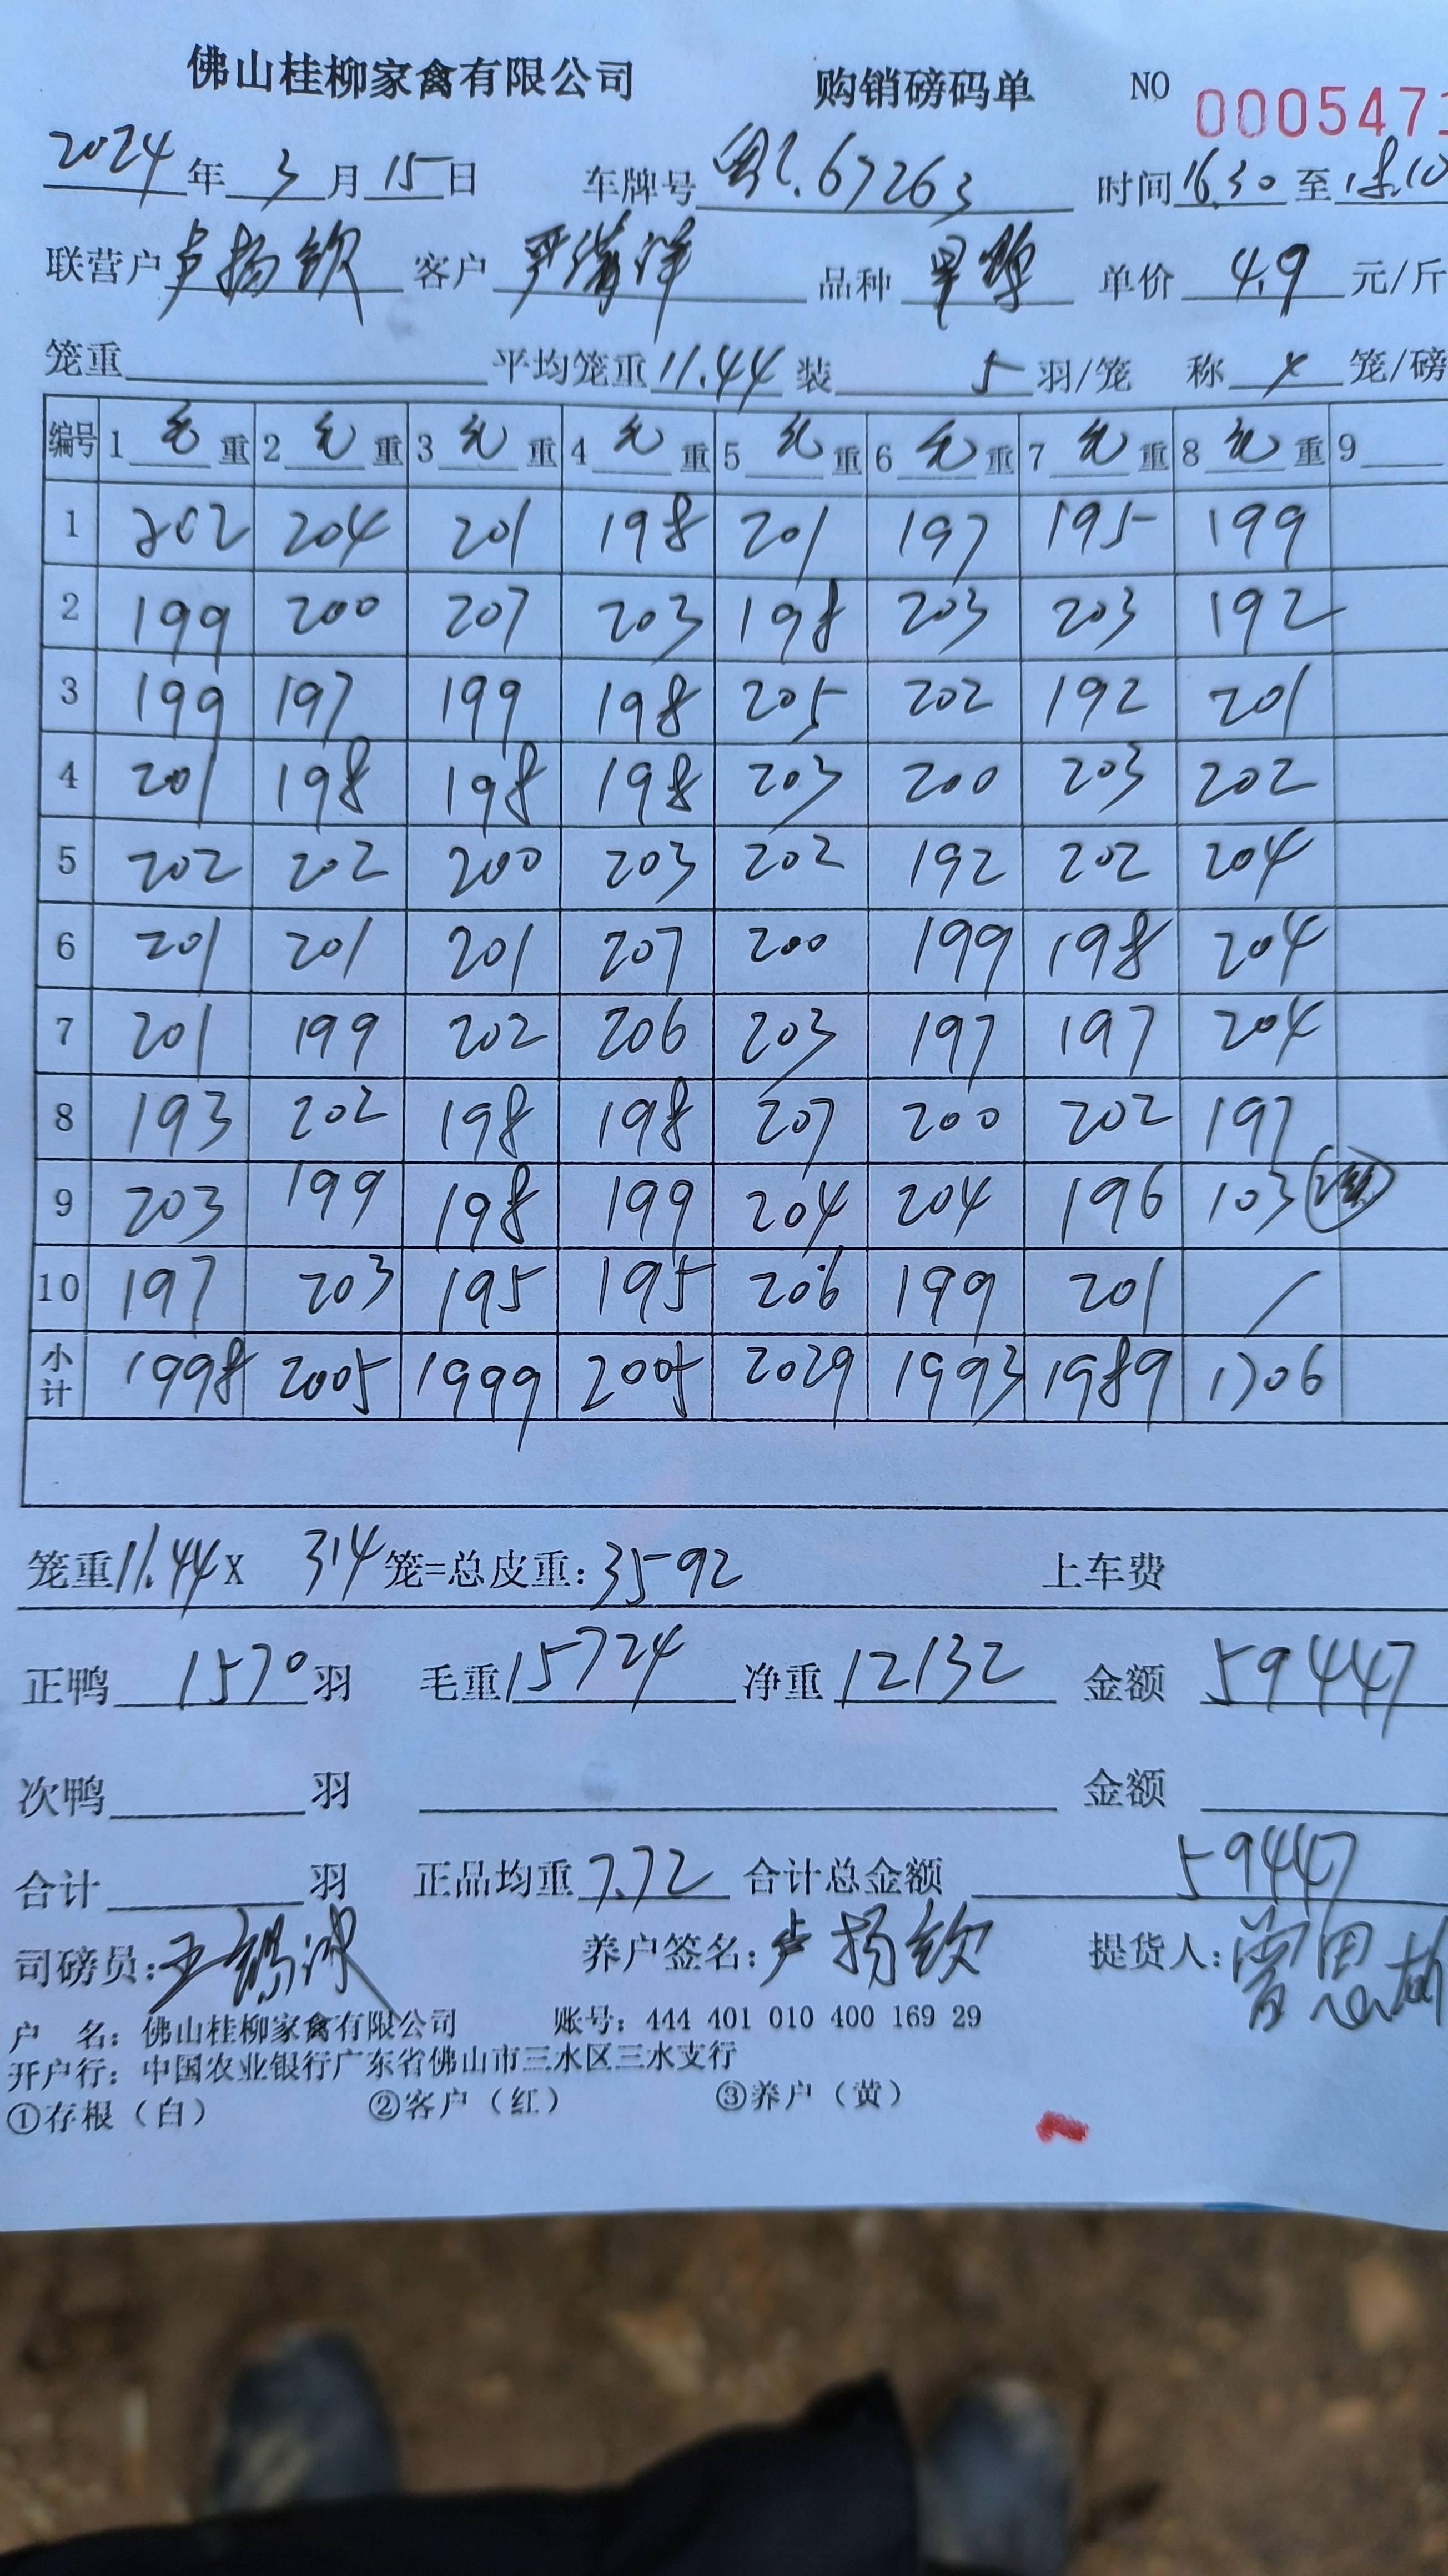 佛山桂柳家禽有限公司 购销磅码单 NO 000547
2024年3月15日 车牌号 67263 时间16.30至18.10
联营户卢扬钦 客户严 洋 品种 单价4.9元/斤
笼重 平均笼重11.44装5羽/笼 称4笼/磅
编号 1毛重 2毛重 3毛重 4毛重 5毛重 6毛重 7毛重 8毛重 9
1 202 204 201 198 201 197 195 199
2 199 200 207 203 198 203 203 192
3 199 197 199 198 205 202 192 201
4 201 198 198 198 203 200 203 202
5 202 202 200 203 202 192 202 204
6 201 201 201 207 200 199 198 204
7 201 199 202 206 203 197 197 204
8 193 202 198 198 207 200 202 197
9 203 199 198 199 204 204 196 103
10 197 203 195 195 206 199 201 /
小计 1998 2005 1999 2005 2029 1993 1989 1706
笼重11.44X 314笼=总皮重:3592 上车费
正鸭1570羽 毛重15724 净重12132 金额59447
次鸭 羽 金额
合计 羽 正品均重7.72 合计总金额59447
司磅员:王 养户签名:卢扬钦 提货人:曾思
户 名：佛山桂柳家禽有限公司 账号：444 401 010 400 169 29
开户行：中国农业银行广东省佛山市三水区三水支行
①存根（白） ②客户（红） ③养户（黄）